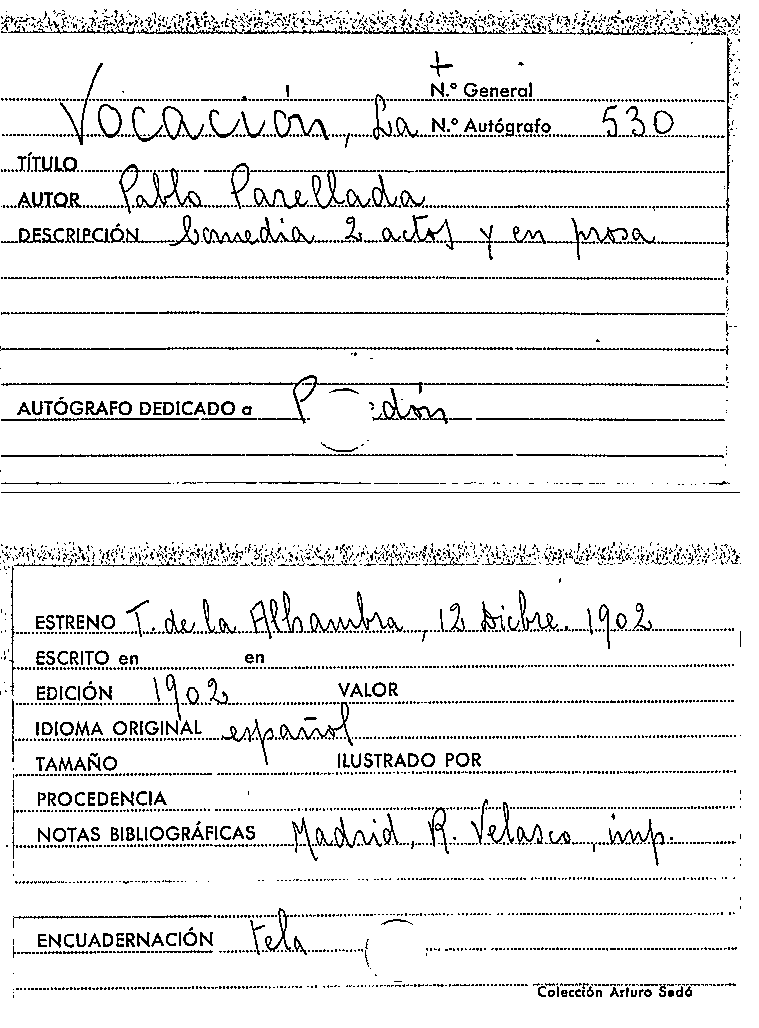 +
N.º General
Vocación, La N.º Autógrafo 530
TÍTULO
AUTOR Pablo Parellada
DESCRIPCIÓN Comedia 2 actos y en prosa
AUTÓGRAFO DEDICADO a
ESTRENO T. de la Alhambra, 12 Dicbre. 1902
ESCRITO en en
EDICIÓN 1902 VALOR
IDIOMA ORIGINAL español
TAMAÑO ILUSTRADO POR
PROCEDENCIA
NOTAS BIBLIOGRÁFICAS Madrid, R. Velasco, imp.
ENCUADERNACIÓN tela
Colección Arturo Sedó